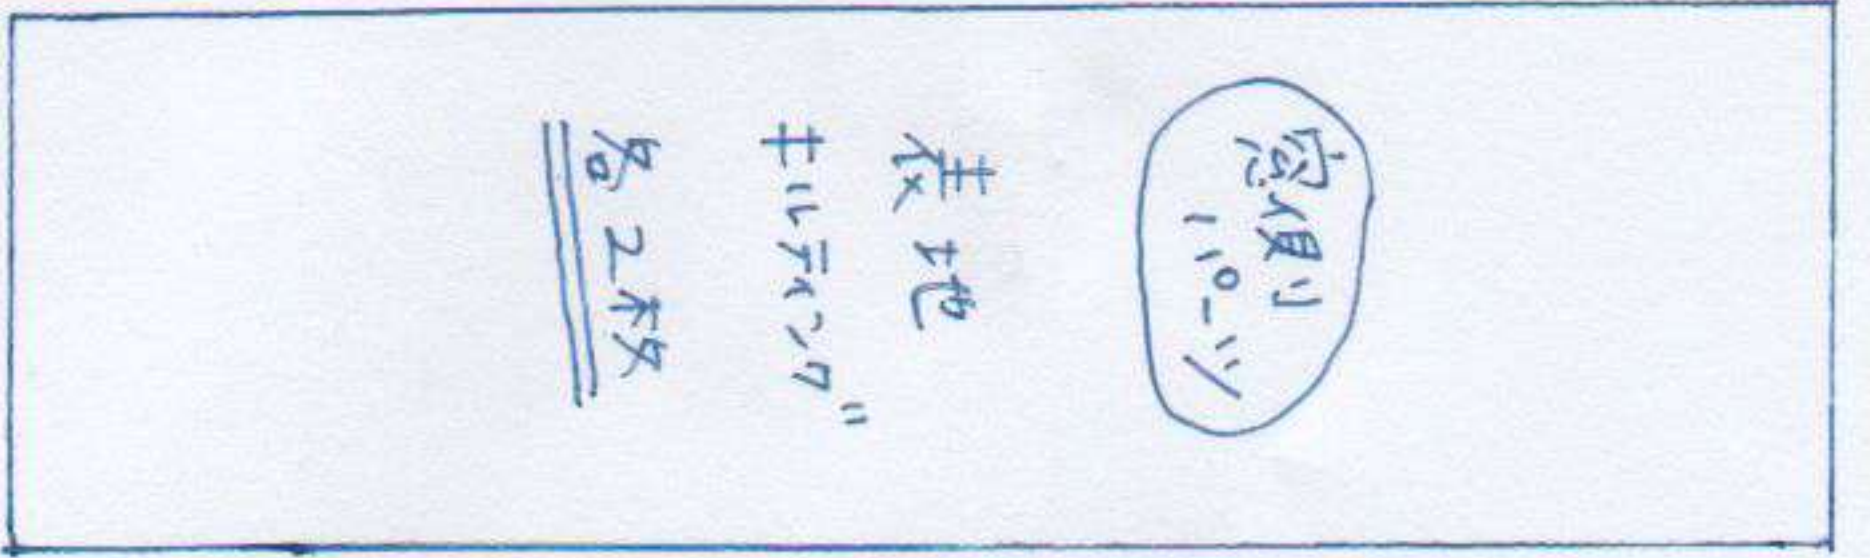 窓側
パーツ
表地
キルティング
各2枚